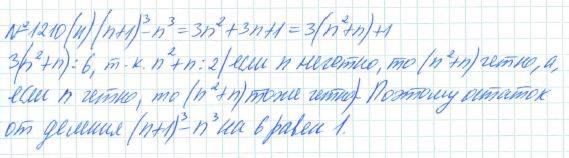 №1210(н) (n+1)³-n³=3n²+3n+1=3(n²+n)+1
3(n²+n)⋮6, т.к. n²+n⋮2 (если n нечетно, то (n²+n) четно, а,
если n четно, то (n²+n) тоже четно). Поэтому остаток
от деления (n+1)³-n³ на 6 равен 1.